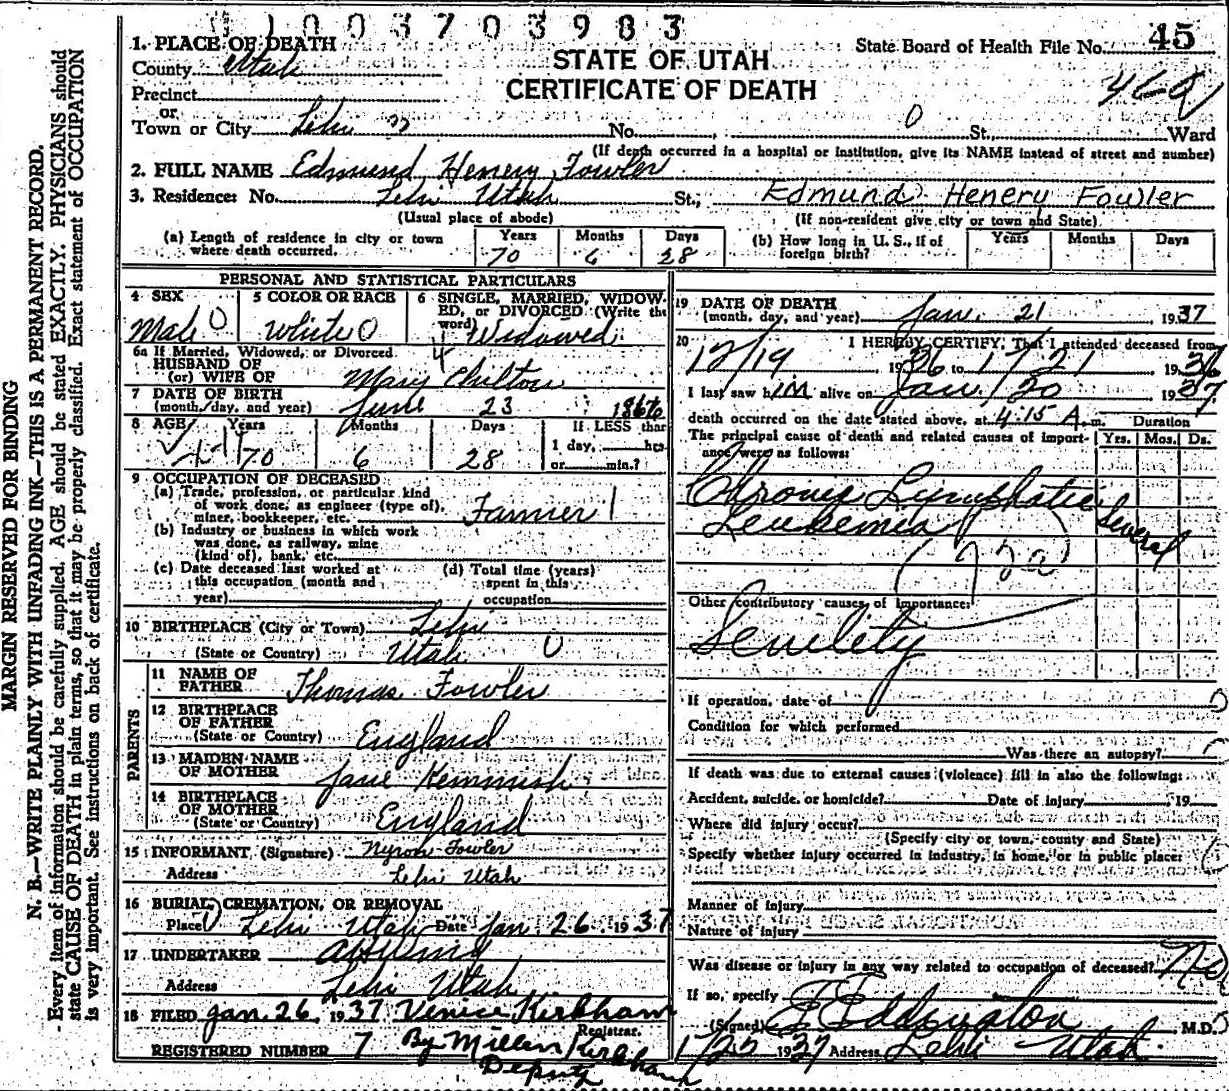 1003703983
1. PLACE OF DEATH
State Board of Health File No. 45
County Utah
STATE OF UTAH
CERTIFICATE OF DEATH
Precinct
or
Town or City Lehi No. 0 St. Ward
(If death occurred in a hospital or institution, give its NAME instead of street and number)
2. FULL NAME Edmund Henery Fowler
3. Residence: No. Lehi Utah St., Edmund Henery Fowler
(Usual place of abode) (If non-resident give city or town and State)
(a) Length of residence in city or town where death occurred. Years 70 Months 6 Days 28
(b) How long in U. S., if of foreign birth? Years Months Days
PERSONAL AND STATISTICAL PARTICULARS
4 SEX Male 0
5 COLOR OR RACE White 0
6 SINGLE, MARRIED, WIDOWED, or DIVORCED (Write the word) Widowed
4
6a If Married, Widowed, or Divorced
HUSBAND OF
(or) WIFE OF Mary Chilton
7 DATE OF BIRTH
(month, day, and year) June 23 1866
8 AGE Years 70 Months 6 Days 28 If LESS than 1 day, hrs. or min.?
9 OCCUPATION OF DECEASED
(a) Trade, profession, or particular kind
of work done, as engineer (type of),
miner, bookkeeper, etc. Farmer 1
(b) Industry or business in which work
was done, as railway, mine
(kind of), bank, etc.
(c) Date deceased last worked at
this occupation (month and
year)
(d) Total time (years)
spent in this
occupation
10 BIRTHPLACE (City or Town) Lehi
(State or Country) Utah
PARENTS
11 NAME OF
FATHER Thomas Fowler
12 BIRTHPLACE
OF FATHER
(State or Country) England
13 MAIDEN NAME
OF MOTHER Jane Kemmish
14 BIRTHPLACE
OF MOTHER
(State or Country) England
15 INFORMANT (Signature) Myron Fowler
Address Lehi Utah
16 BURIAL, CREMATION, OR REMOVAL
Place Lehi Utah Date Jan. 26. 1937
17 UNDERTAKER A H Wing
Address Lehi Utah
18 FILED Jan. 26, 1937 Venice Kirkham
Registrar.
REGISTERED NUMBER 7 By Kirkham
Deputy
19 DATE OF DEATH
(month, day, and year) Jan. 21 1937
20 I HEREBY CERTIFY, That I attended deceased from
12/19 1936 to 1/21 1936
I last saw him alive on Jan/20 1937
death occurred on the date stated above, at 4:15 A.m.
The principal cause of death and related causes of importance were as follows:
Duration
Yrs. Mos. Ds.
Chronic Lymphatic
Leukemia Several
(72a)
Other contributory causes of importance:
Senility
If operation, date of
Condition for which performed
Was there an autopsy?
If death was due to external causes (violence) fill in also the following:
Accident, suicide, or homicide? Date of injury 19
Where did injury occur?
(Specify city or town, county and State)
Specify whether injury occurred in industry, in home, or in public place:
Manner of injury
Nature of injury
Was disease or injury in any way related to occupation of deceased? No
If so, specify
(Signed) E Eddington M.D.
1/25 1937 Address Lehi Utah
MARGIN RESERVED FOR BINDING
N. B.—WRITE PLAINLY WITH UNFADING INK—THIS IS A PERMANENT RECORD.
Every item of information should be carefully supplied. AGE should be stated EXACTLY. PHYSICIANS should
state CAUSE OF DEATH in plain terms, so that it may be properly classified. Exact statement of OCCUPATION
is very important. See instructions on back of certificate.